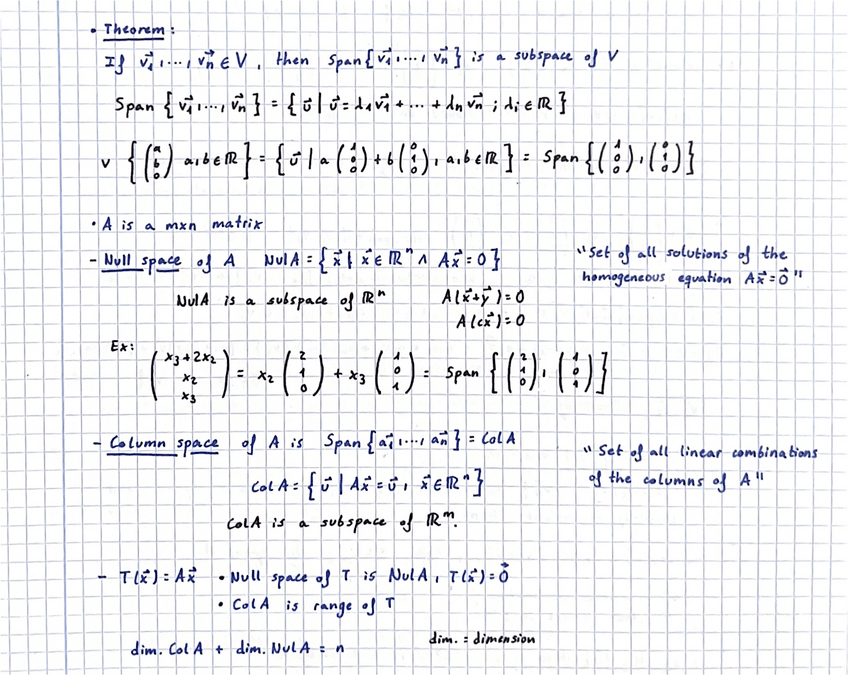 • Theorem:
If v⃗1, ..., v⃗n ∈ V, then Span{v⃗1, ..., v⃗n} is a subspace of V
Span {v⃗1, ..., v⃗n} = {v⃗ | v⃗ = λ1v⃗1 + ... + λnv⃗n ; λi ∈ ℝ}
v {(a b 0) a,b ∈ ℝ} = {v⃗ | a (1 0 0) + b (0 1 0), a,b ∈ ℝ} = Span {(1 0 0), (0 1 0)}
• A is a mxn matrix
- Null space of A NulA = {x⃗ | x⃗ ∈ ℝⁿ ∧ Ax⃗ = 0}
"Set of all solutions of the
homogeneous equation Ax⃗ = 0⃗"
NulA is a subspace of ℝⁿ
A(x⃗+y⃗) = 0
A(cx⃗) = 0
Ex:
(x3+2x2 x2 x3) = x2 (2 1 0) + x3 (1 0 1) = Span {(2 1 0), (1 0 1)}
- Column space of A is Span{a⃗1, ..., a⃗n} = ColA
"Set of all linear combinations
of the columns of A"
ColA = {v⃗ | Ax⃗ = v⃗, x⃗ ∈ ℝⁿ}
ColA is a subspace of ℝᵐ.
- T(x⃗) = Ax⃗ • Null space of T is NulA, T(x⃗) = 0⃗
• ColA is range of T
dim. ColA + dim. NulA = n
dim. = dimension